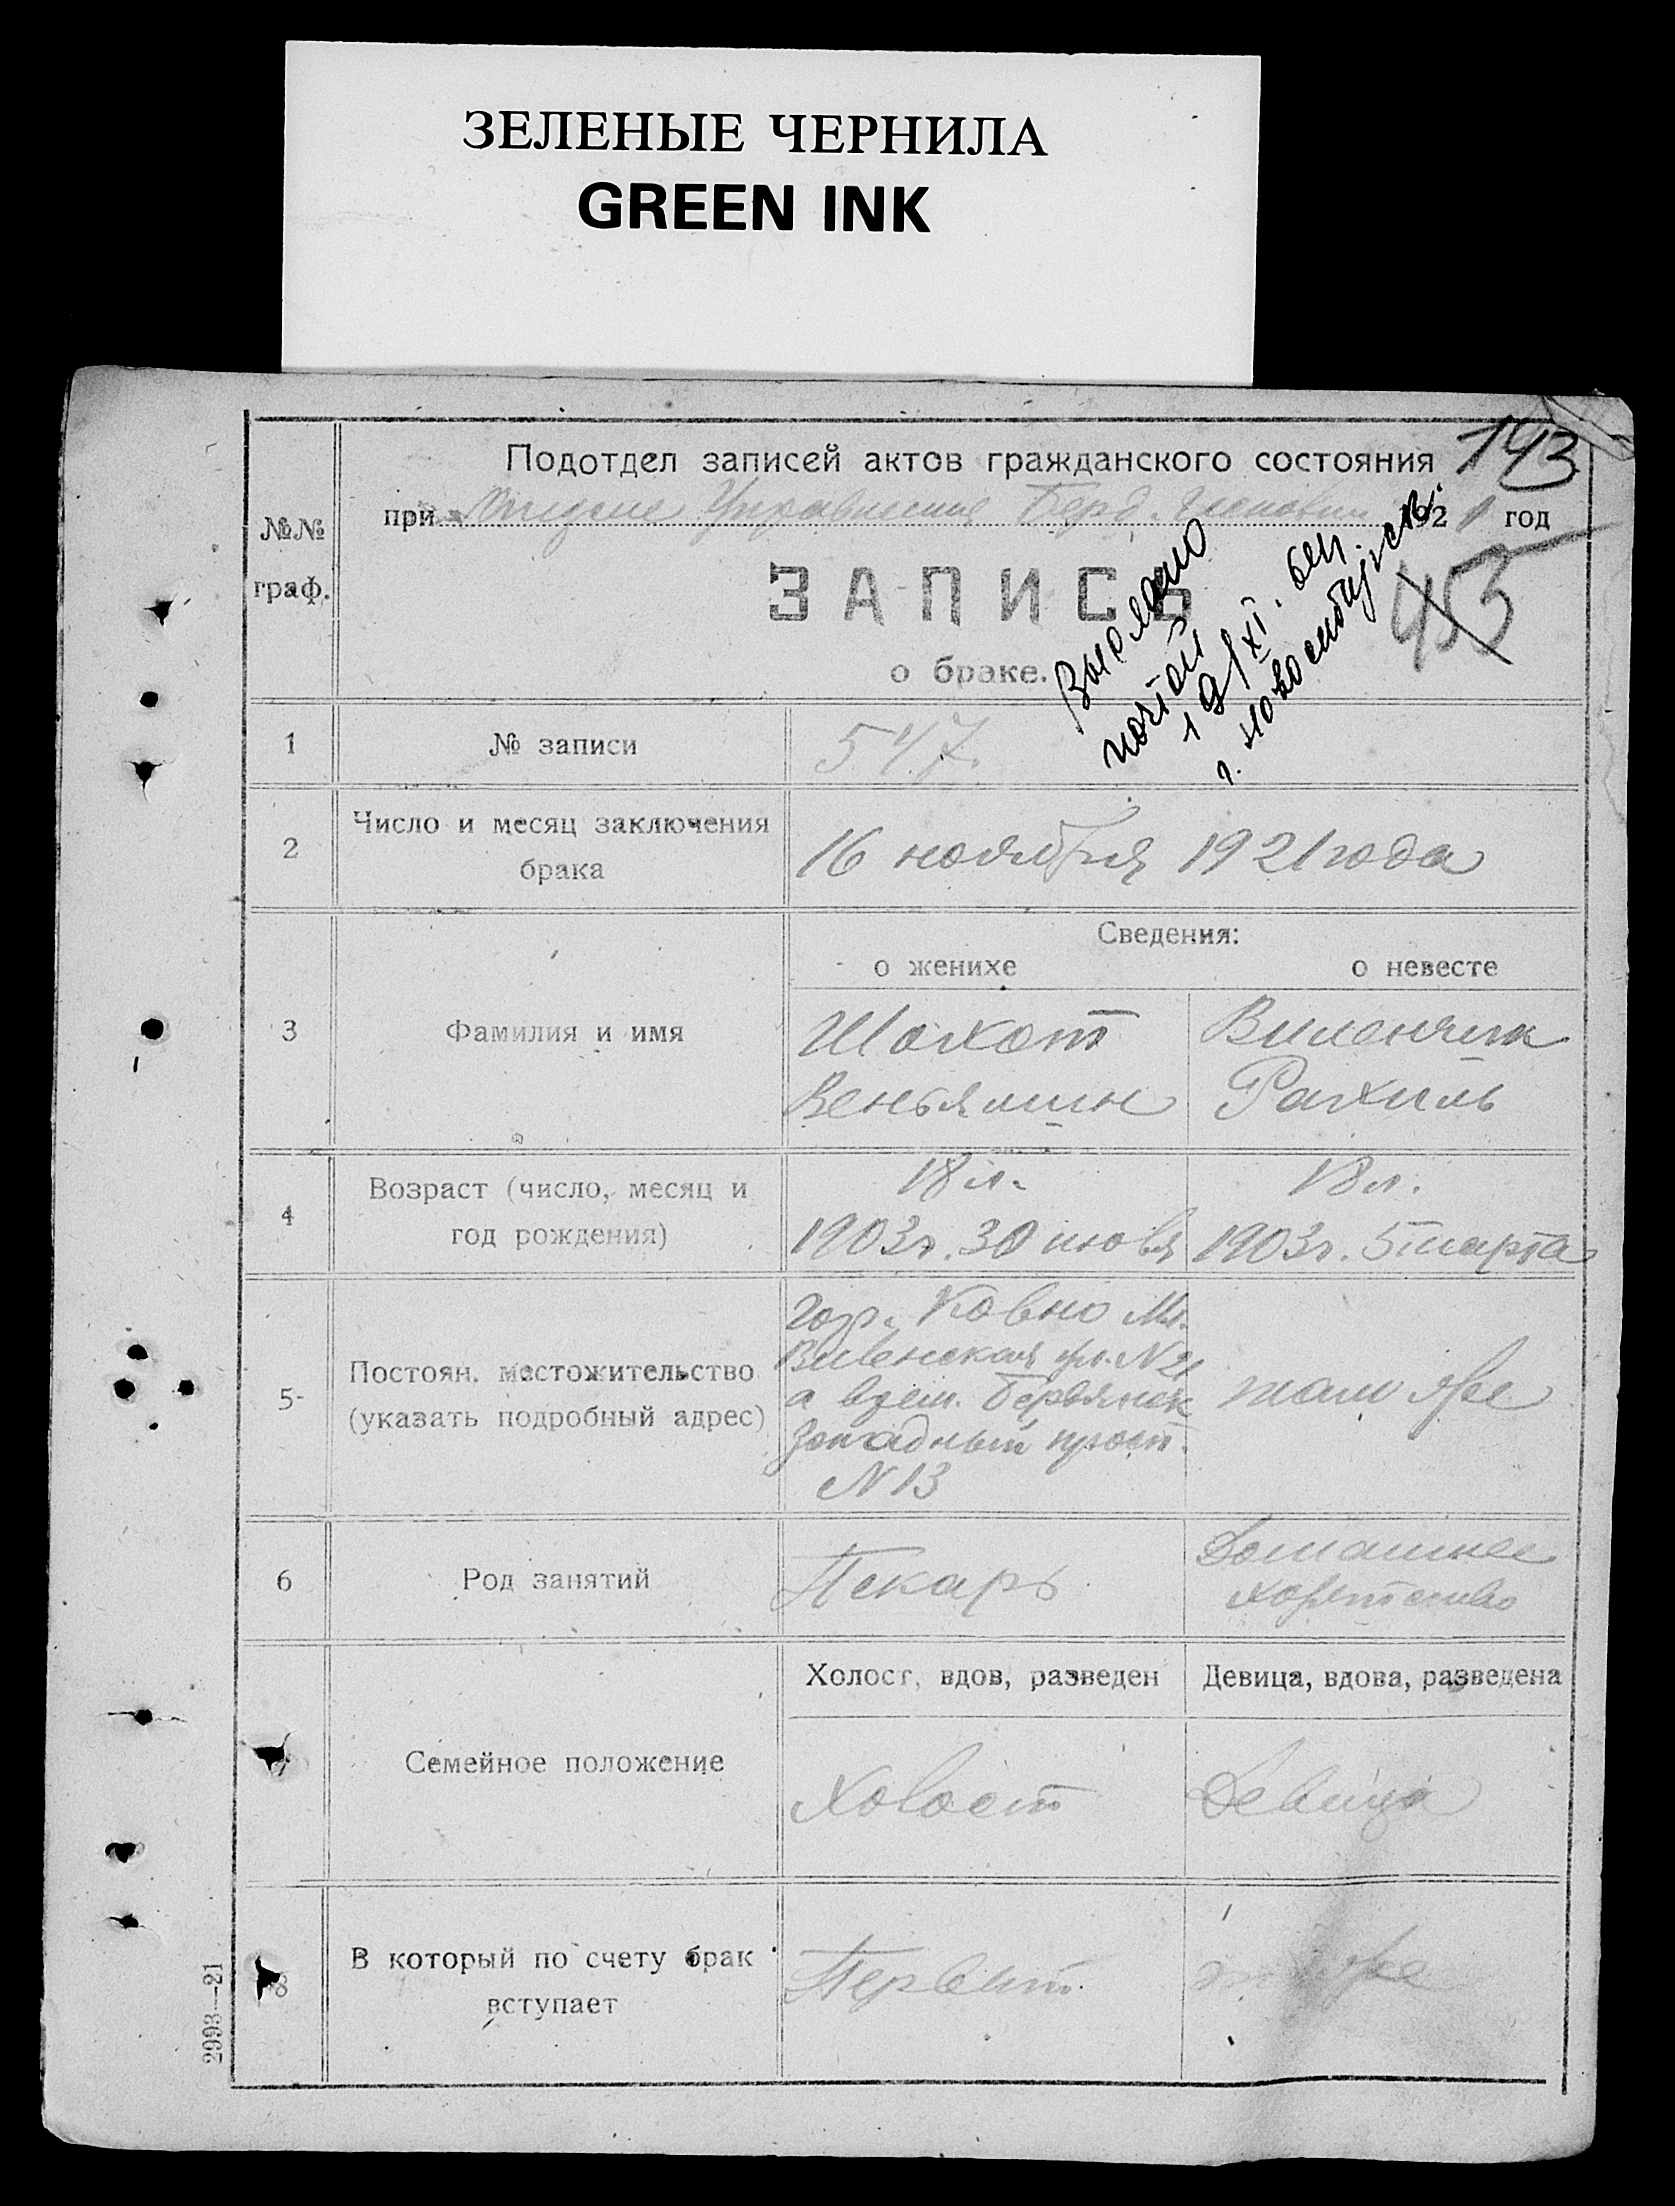 ЗЕЛЕНЫЕ ЧЕРНИЛА
GREEN INK
Подотдел записей актов гражданского состояния
143
№№ граф.
при Берд. 1921 год
ЗАПИСЬ
о браке.
453
Выслано
почтой
г. Новосибирск
1 № записи 547.
2 Число и месяц заключения брака 16 ноября 1921 года
Сведения:
о женихе о невесте
3 Фамилия и имя
Шохот Виленчик
Веньямин Рахиль
4 Возраст (число, месяц и год рождения)
18 л. 18 л.
1903 г. 30 1903 г. 5 марта
5 Постоян. местожительство (указать подробный адрес)
гор. Ковно
Виленская ул. N
а врем. Бердянск
Западный просп.
N 13
там же
6 Род занятий
Пекарь Домашнее
хозяйство
Холост, вдов, разведен Девица, вдова, разведена
7 Семейное положение
Холост Девица
8 В который по счету брак вступает
Первый то же
2993—21